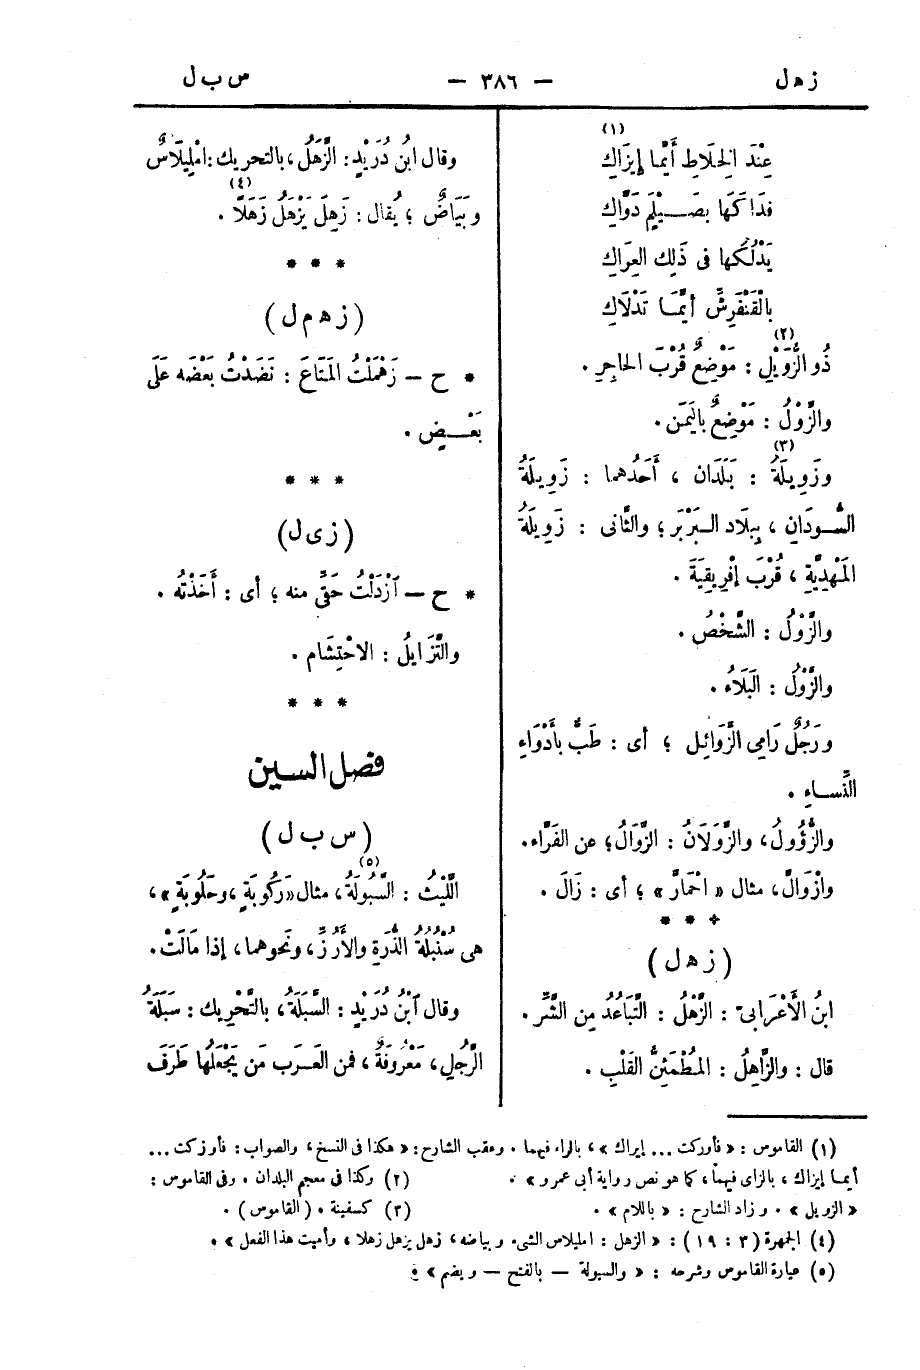 زهل
— ٣٨٦ —
س ب ل
(١)
عِنْدَ الخِلَاطِ أَيَّما إيزَاكِ
فدَاكَهَا بصَـيْلَمٍ دَوَّاكِ
يَدْلُكها فى ذَلِك العِرَاكِ
بالْقَنْفَرِشِّ أيَّمَـا تَدْلَاكِ
(٢)
ذُو الزُّوَيْلِ : مَوْضِعٌ قُرْبَ الحاجِرِ .
والزَّوْلُ : مَوْضِعٌ باليَمَن .
(٣)
وزَوِيلَةُ : بَلَدَان ، أَحَدُهما : زَوِيلَةُ
السُّـودَانِ ، بِبِلَاد البَرْبَر ؛ والثَّانى : زَوِيلَةُ
المَهْدِيَّةِ ، قُرْبَ إفْرِيقِيَةَ .
والزَّوْلُ : الشَّخْصُ .
والزَّوْلُ : البَلَاءُ .
ورَجُلٌ رَامِى الزَّوَائِـل ؛ أى : طَبٌّ بأَدْوَاءِ
النِّسـاءِ .
والزُّؤُولُ، والزَّوَلَانُ : الزَّوَالُ ؛ عن الفَرَّاء.
وازْوَالَّ، مثال « احْمَارَّ » ؛ أى : زَالَ .
* * *
( زهل )
ابنُ الأَعْرَابىّ : الزَّهْلُ : التَّبَاعُدُ مِن الشَّرِّ .
قال : والزَّاهِلُ : المُطْمَئِنُّ القَلْبِ .
وقال ابنُ دُرَيْدٍ : الزَّهَلُ ، بالتحريك : امْلِيلَاسٌ
(٤)
وبَيَاضٌ ؛ يُقال : زَهِلَ يَزْهَلُ زَهَلًا .
* * *
( زهم ل )
* ح — زَهْمَلْتُ المَتَاعَ : نَضَدْتُ بَعْضَه عَلَى
بَعْـضٍ .
* * *
( زى ل )
* ح — ٱزْدَلْتُ حَقِّى منه ؛ أى : أَخَذْتُه .
والتَّزَايلُ : الاحْتِشَام .
* * *
فصل السين
( س ب ل )
(٥)
اللَّيْثُ : السَّبُولَةُ ، مثال « رَكُوبَةٍ ، وحَلُوبَةٍ » ،
هى سُنْبُلَةُ الذُّرَةِ والأَرُزِّ ، ونَحوهما ، إذا مَالَتْ .
وقال ٱبْنُ دُرَيْدٍ : السَّبَلَةُ ، بالتَّحْرِيك : سَبَلَةُ
الرَّجُلِ ، مَعْرُوفَةٌ ، فمن العَـرَب مَن يَجْعَلُها طَرَفَ
(١) القاموس : « فأوركت ... إيراك » ، بالراء فيهما . وعقب الشارح : « هكذا فى النسخ ، والصواب : فأوزكت ...
أيما إيزاك ، بالزاى فيهما ، كما هو نص رواية أبى عمرو » .
(٢) وكذا فى معجم البلدان . وفى القاموس :
« الزويل » . وزاد الشارح : « باللام » .
(٣) كسفينة . ( القاموس ) .
(٤) الجمهرة ( ٣ : ١٩ ) : « الزهل : امليلاس الشىء وبياضه ، زهل يزهل زهلا ، وأميت هذا الفعل » .
(٥) عبارة القاموس وشرحه : « والسبولة — بالفتح — ويضم » .